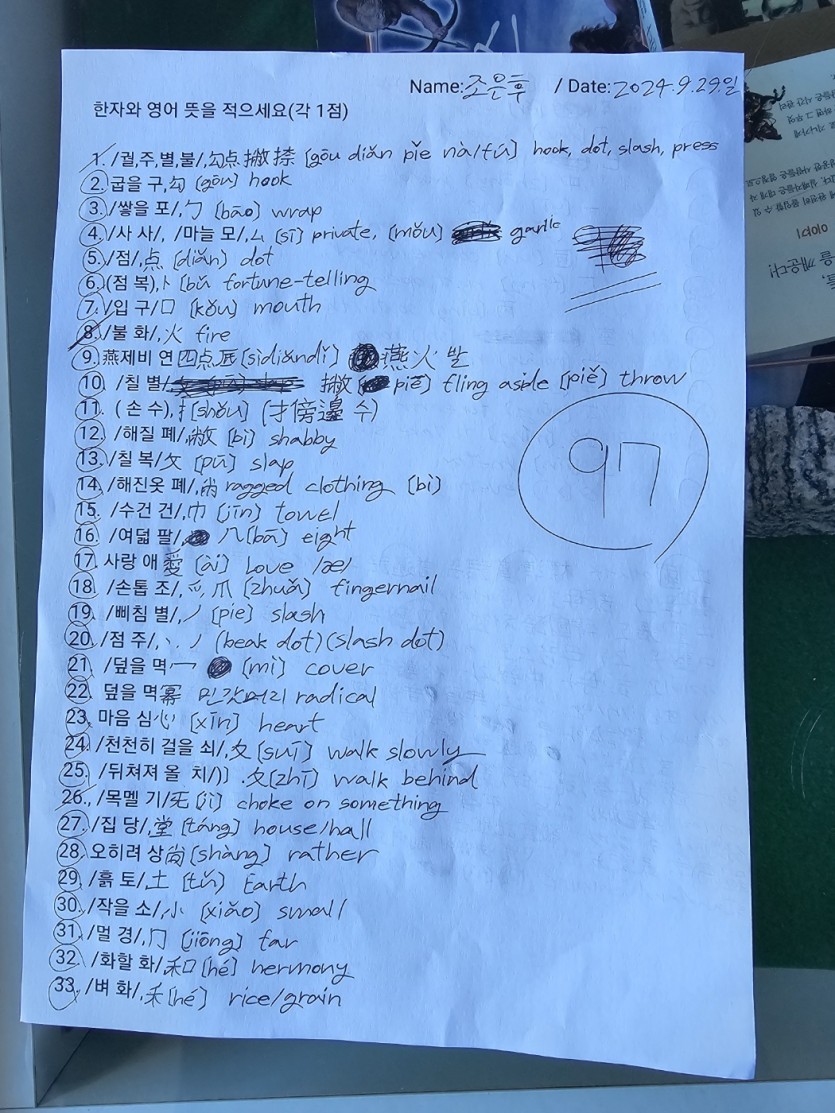 Name: 조은후 / Date: 2024.9.29.일
한자와 영어 뜻을 적으세요(각 1점)
1. /궐,주,별,불/,勾点撇捺 [gōu diǎn pǐe nà/fú] hook, dot, slash, press
2. 굽을 구,勾 [gōu] hook
3. /쌓을 포/,勹 [bāo] wrap
4. /사 사/, /마늘 모/,厶 [sī] private, [mǒu] garlic
5. /점/,点 [diǎn] dot
6. (점 복),卜 [bǔ] fortune-telling
7. /입 구/口 [kǒu] mouth
8. /불 화/,火 fire
9. 燕제비 연 四点底[sìdiǎndǐ] 燕火生
10. /칠 별/ 撇 piē fling aside [piě] throw
11. (손 수),扌[shǒu] (才傍邊 수)
12. /해질 폐/,敝 [bì] shabby
13. /칠 복/攵 [pū] slap
14. /해진옷 폐/,㡀 ragged clothing [bì]
15. /수건 건/,巾 [jīn] towel
16. /여덟 팔/, 八[bā] eight
17. 사랑 애 愛 [ài] Love
18. /손톱 조/,爫爪 [zhuǎ] fingernail
19. /삐침 별/,丿 [pie] slash
20. /점 주/,丶丿 (beak dot)(slash dot)
21. /덮을 멱冖 [mì] cover
22. 덮을 멱冪 민갓머리 radical
23. 마음 심心 [xīn] heart
24. /천천히 걸을 쇠/,夊 [suī] walk slowly
25. /뒤쳐져 올 치/)] .夂[zhǐ] walk behind
26., /목멜 기/旡 [jì] choke on something
27. /집 당/,堂 [táng] house/hall
28. 오히려 상尙 [shàng] rather
29. /흙 토/,土 [tǔ] Earth
30. /작을 소/,小 [xiǎo] small
31. /멀 경/,冂 [jiōng] far
32. /화할 화/和 [hé] hermony
33. /벼 화/,禾 [hé] rice/grain
97